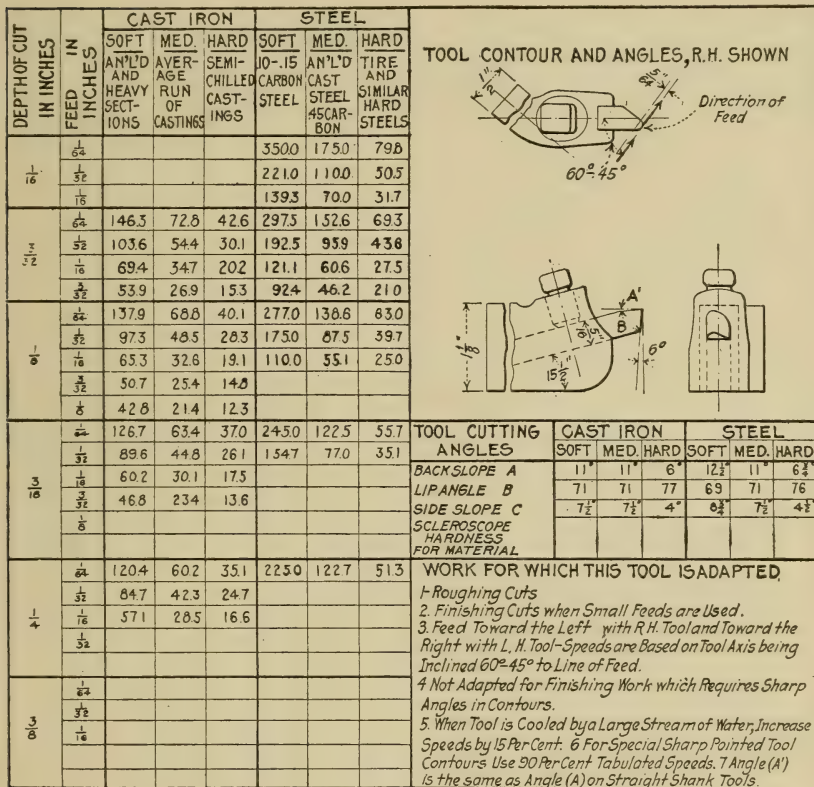 CAST IRON STEEL
DEPTH OF CUT IN INCHES
FEED IN INCHES
SOFT AN'L'D AND HEAVY SECT-IONS
MED. AVER-AGE RUN OF CASTINGS
HARD SEMI-CHILLED CAST-INGS
SOFT .10-.15 CARBON STEEL
MED. AN'L'D CAST STEEL 45 CAR-BON
HARD TIRE AND SIMILAR HARD STEELS
1/16
1/64 350.0 175.0 79.8
1/32 221.0 110.0 50.5
1/16 139.3 70.0 31.7
3/32
1/64 146.3 72.8 42.6 297.5 152.6 69.3
1/32 103.6 54.4 30.1 192.5 95.9 43.6
1/16 69.4 34.7 20.2 121.1 60.6 27.5
3/32 53.9 26.9 15.3 92.4 46.2 21.0
1/8
1/64 137.9 68.8 40.1 277.0 138.6 63.0
1/32 97.3 48.5 28.3 175.0 87.5 39.7
1/16 65.3 32.6 19.1 110.0 55.1 25.0
3/32 50.7 25.4 14.8
1/8 42.8 21.4 12.3
3/16
1/64 126.7 63.4 37.0 245.0 122.5 55.7
1/32 89.6 44.8 26.1 154.7 77.0 35.1
1/16 60.2 30.1 17.5
3/32 46.8 23.4 13.6
1/8
1/4
1/64 120.4 60.2 35.1 225.0 122.7 51.3
1/32 84.7 42.3 24.7
1/16 57.1 28.5 16.6
1/32
3/8
1/64
1/32
1/16
TOOL CONTOUR AND ANGLES, R.H. SHOWN
1/2"
5/64"
Direction of
Feed
60°-45°
A'
B
1 1/8"
5/16"
15 1/2°
6°
TOOL CUTTING ANGLES
CAST IRON STEEL
SOFT MED. HARD SOFT MED. HARD
BACK SLOPE A 11° 11° 6° 12 1/2° 11° 6 3/4°
LIP ANGLE B 71 71 77 69 71 76
SIDE SLOPE C 7 1/2° 7 1/2° 4° 8 3/4° 7 1/2° 4 1/2°
SCLEROSCOPE
HARDNESS
FOR MATERIAL
WORK FOR WHICH THIS TOOL IS ADAPTED
1-Roughing Cuts
2. Finishing Cuts when Small Feeds are Used.
3. Feed Toward the Left with R.H. Tool and Toward the
Right with L.H. Tool-Speeds are Based on Tool Axis being
Inclined 60°-45° to Line of Feed.
4 Not Adapted for Finishing Work which Requires Sharp
Angles in Contours.
5. When Tool is Cooled by a Large Stream of Water, Increase
Speeds by 15 Per Cent. 6 For Special Sharp Pointed Tool
Contours Use 90 Per Cent Tabulated Speeds. 7 Angle (A')
is the same as Angle (A) on Straight Shank Tools.